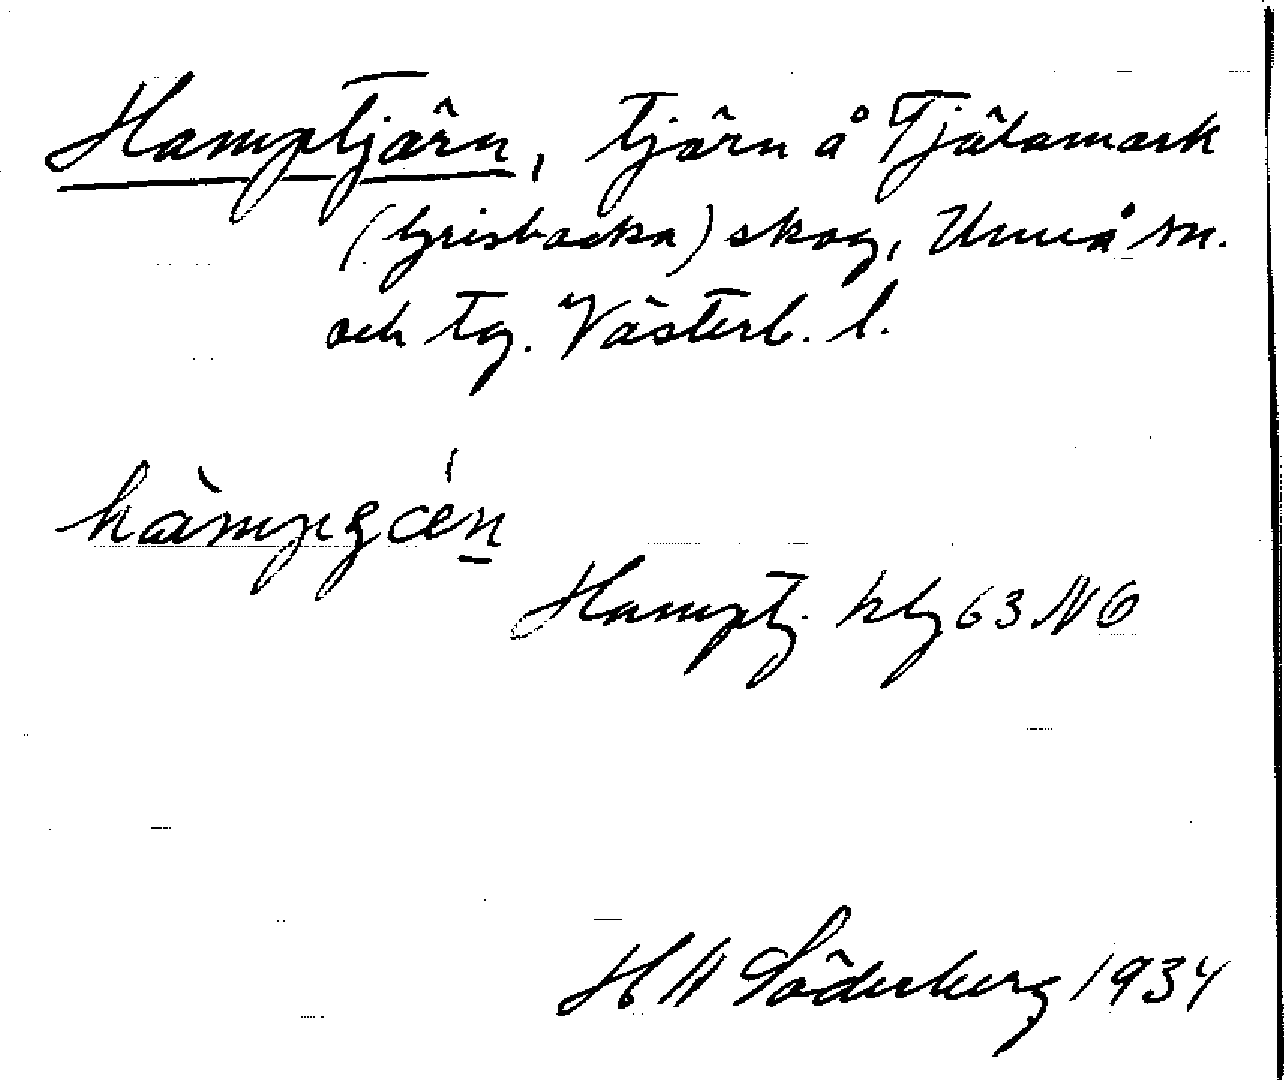 Hamptjärn, tjärn å Tjälamark
(Grisbacka) skog, Umeå sn.
och tg. Västerb. l.
Hamptj. kbl 63 NO
H Söderberg 1934